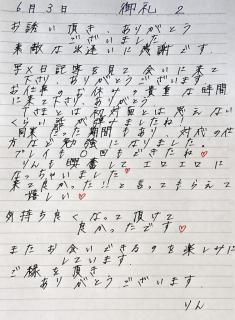 6月3日 御礼 2
お誘い頂き、ありがとう
ございました
素敵な出逢いに感謝です
写メ日記等を見て会いに来て
下さり、ありがとうございます
お仕事のお休みの貴重な時間
に来て下さり、ありがとう
とは初対面とは思えない
くらい話が弾みましたね
同業だった期間もあり、対応の仕
方など勉強になりました。
プレイも何回もできたね♥
りんも興奮してエロエロに
なっちゃいました♥
来て良かった!!と言ってもらえて
嬉しい♥
気持ち良くなって頂けて
良かったです♥
またお会いできるのを楽しみに
しています。
ご縁を頂き
ありがとうございます。
りん